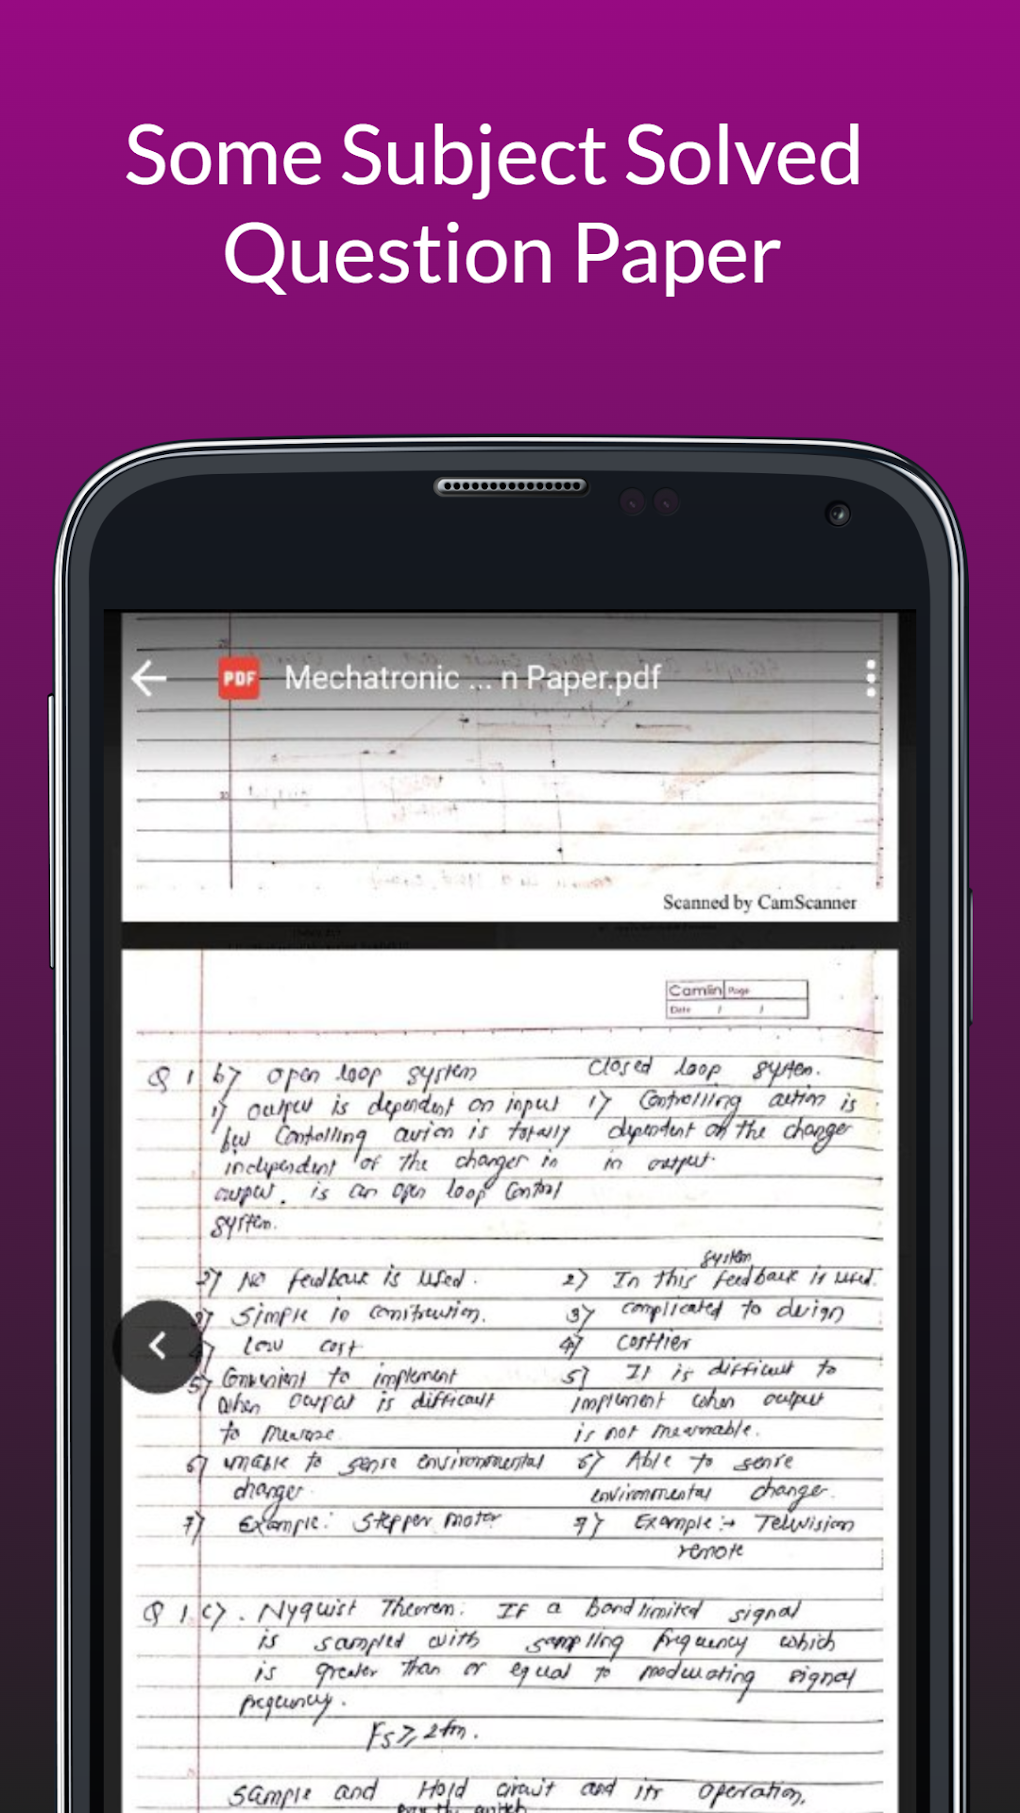 Some Subject Solved
Question Paper
PDF Mechatronic ... n Paper.pdf
Scanned by CamScanner
Camlin Page
Date / /
Q 1 b) open loop system closed loop system.
1) output is dependent on input 1) Controlling action is
but Controlling action is totally dependent on the changer
independent of the changer in in output.
output. is an open loop Control
system.
system
2) No feedback is used. 2) In this feedback is used.
3) simple in construction. 3) complicated to design
4) low cost 4) costlier
5) Convenient to implement 5) It is difficult to
when output is difficult implement when output
to measure is not measurable.
6) unable to sense environmental 6) Able to sense
changer environmental changer.
7) Example: Stepper motor 7) Example:→ Television
remote
Q 1. c). Nyquist Theorem: If a bandlimited signal
is sampled with sampling frequency which
is greater than or equal to modulating signal
frequency.
Fs ≥ 2fm.
Sample and Hold circuit and its operation.
switch